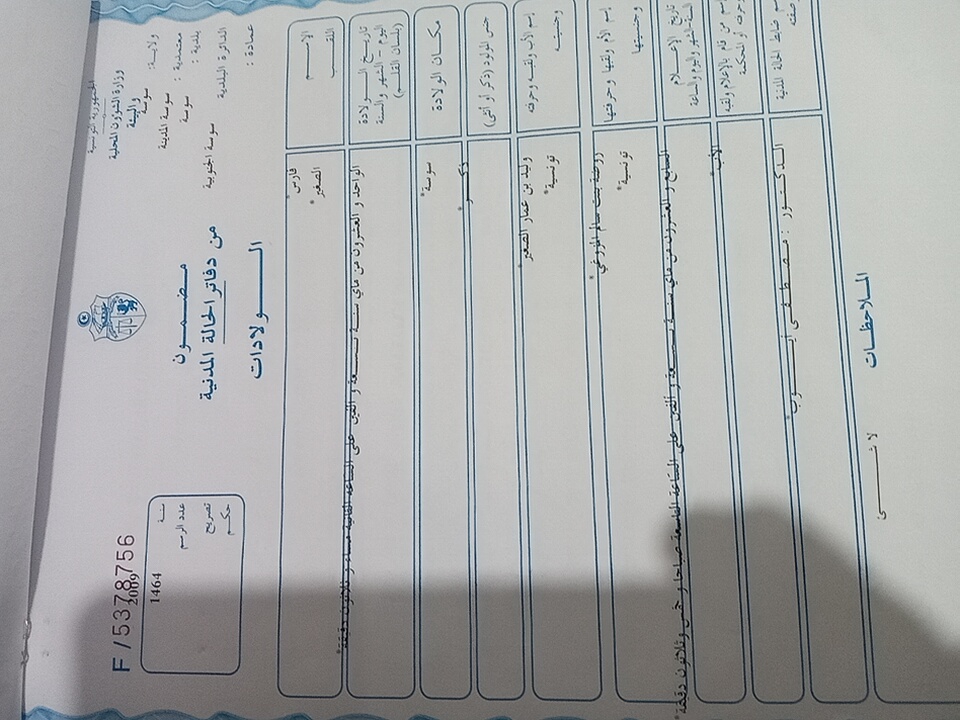 الجمهورية التونسية
وزارة الشؤون المحلية
والبيئة
ولاية : سوسة
معتمدية : سوسة المدينة
بلدية : سوسة
الدائرة البلدية سوسة الجنوبية
عمادة :
مضمون
من دفاتر الحالة المدنية
الولادات
F /5378756
سنة 2009
عدد الرسم 1464
تصريح
حكم
الإسم فارس *
اللقب الصغير *
تاريخ الولادة
اليوم - الشهر والسنة
(بلسان القلم) الواحد و العشرون من ماي سنة تسعة و ألفين على الساعة الثانية مساء و ثلاثون دقيقة *
مكان الولادة سوسة *
جنس المولود (ذكر أو أنثى) ذكر *
إسم الأب ولقبه وحرفته وليد بن عمار الصغير *
وجنسيته تونسية *
إسم الأم ولقبها وحرفتها بنت سالم
وجنسيتها تونسية *
تاريخ الإعلام
السنة-الشهر واليوم والساعة السابع و العشرون من ماي سنة تسعة و ألفين على الساعة التاسعة صباحا و خمس وثلاثون دقيقة *
إسم من قام بالإعلام ولقبه
وحرفته أو المحكمة الأب *
ضابط الحالة المدنية
وصفته الدكتور : مصطفى أيوب *
الملاحظات
لا شيء